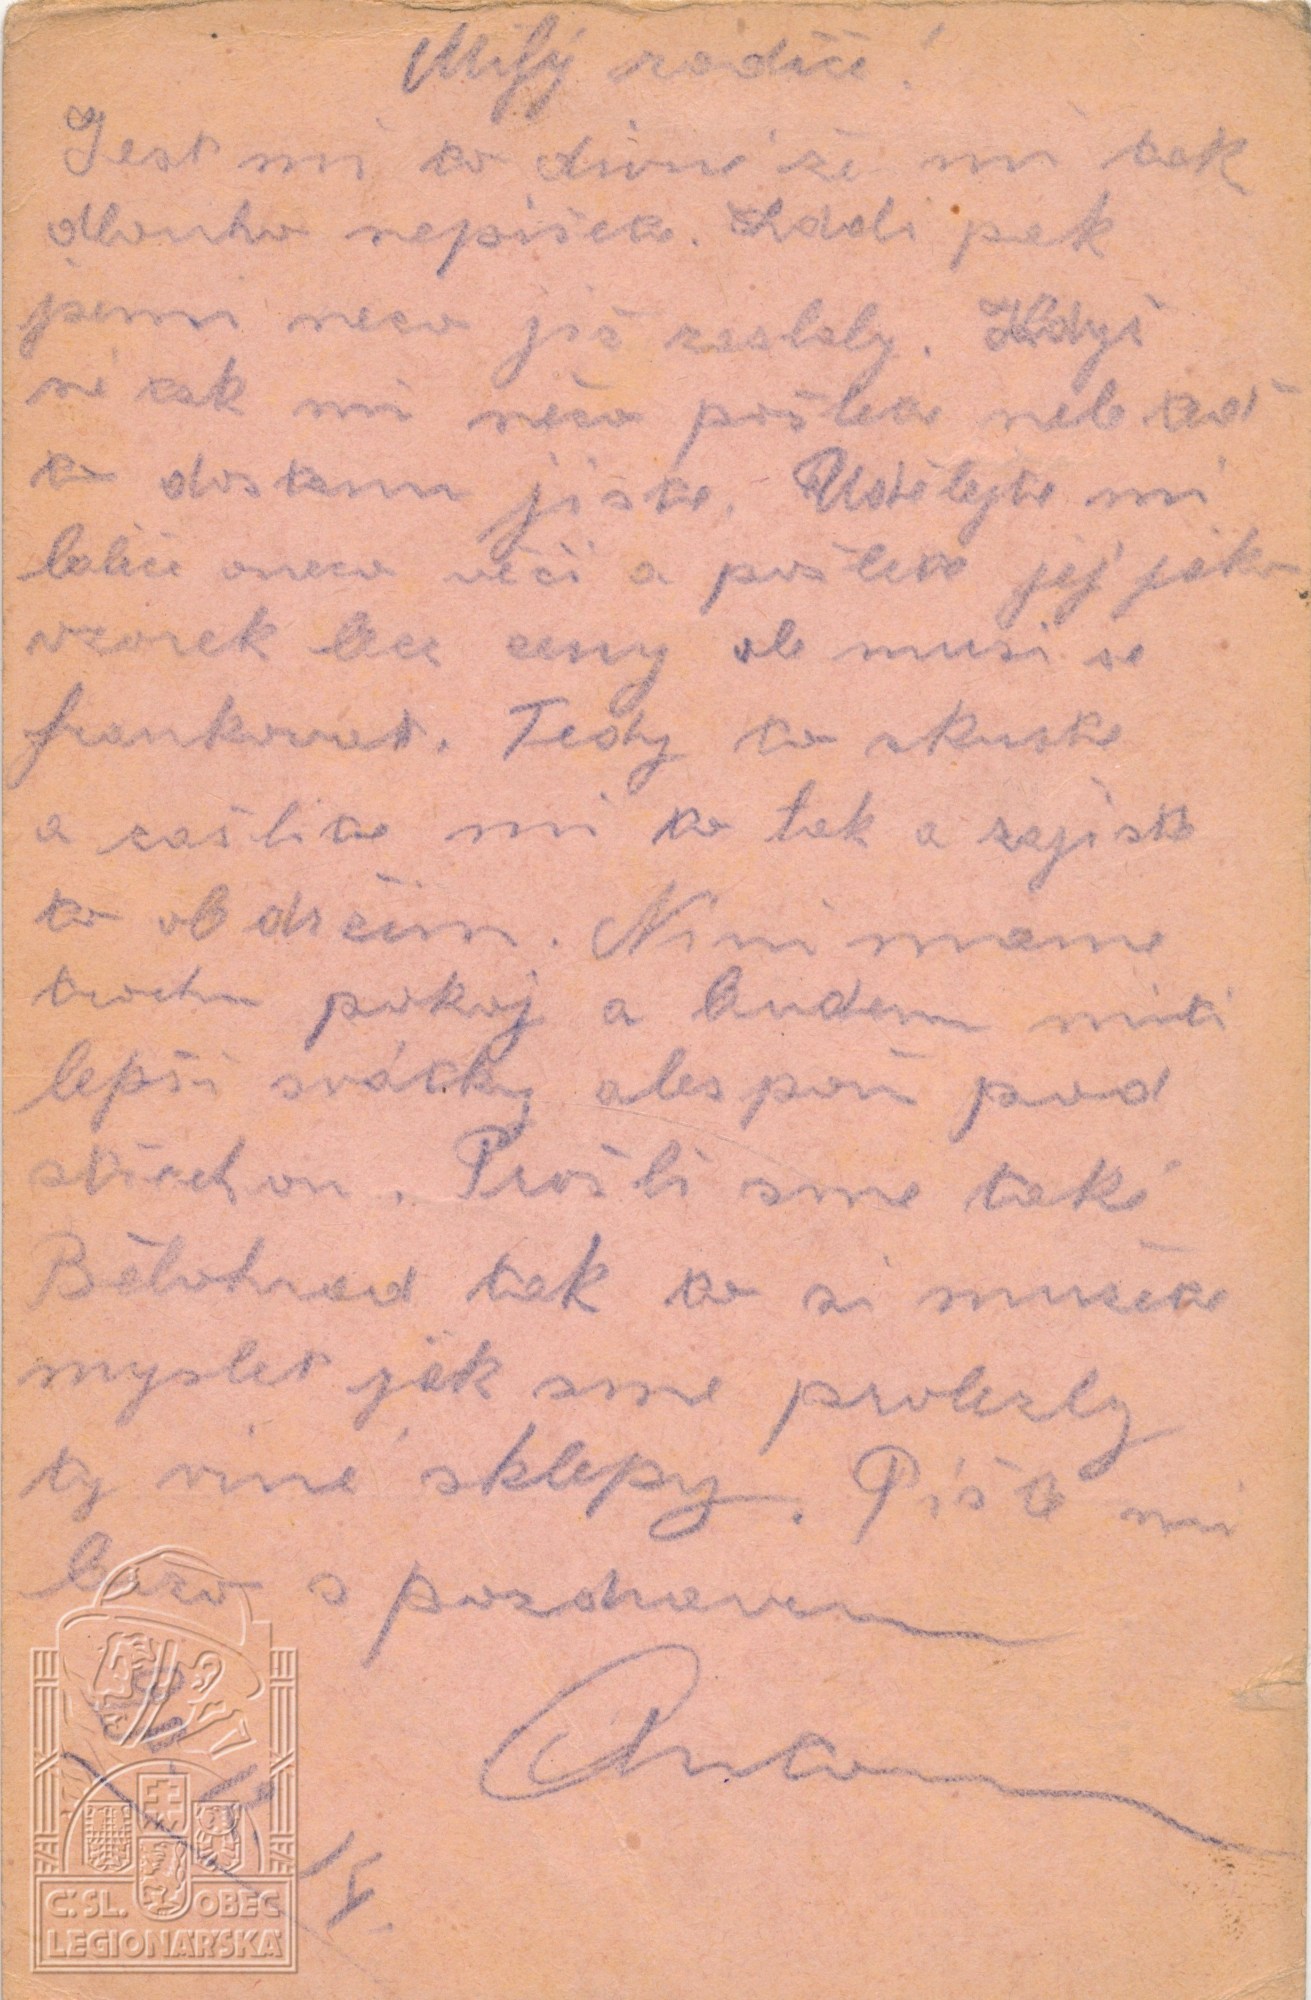 Milý rodiče!
Jest mi to divné že mi tak
dlouho nepíšete. Zdali pak
jsem neco již zaslaly. Když
né tak mi něco pošlete neb teď
to dostanu jistě. Udělejte mi
balíče oneco věčí a pošlete jej jako
vzorek bez ceny ale musi se
frankovat. Tedy to skuste
a zašlete mi to tak a zajistě
to obdržim. Nini mame
trochu pokoj a budem miti
lepši svátky alespoň pod
střechou. Prošli sme také
Bělohrad tak to si mužete
myslet jak sme prolezly
ty viné sklepy. Pište mi
brzo s pozdravem
Anton
15.
Č.SL. OBEC
LEGIONÁŘSKÁ